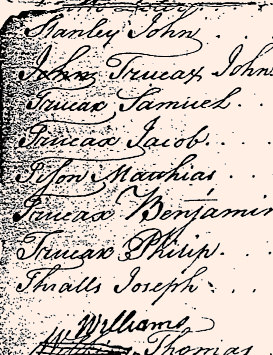 Stanley John . . .
Johns Trueax John
Trueax Samuel . .
Trueax Jacob . . . .
Tison Matthias . . . .
Trueax Benjamin
Trueax Philip . . .
Thralls Joseph . . .
Williams
Thomas